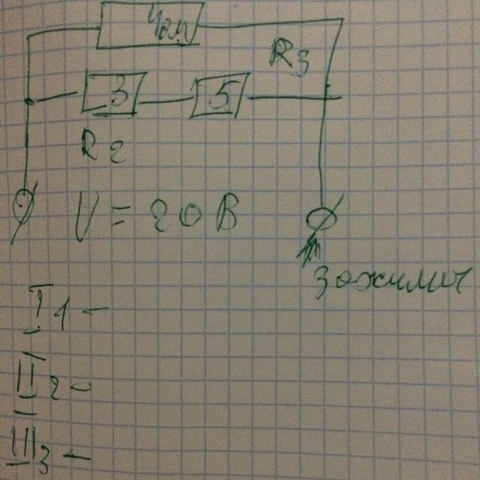 4 ом
R3
3 5
R2
U = 20 В
зажимы
I1 –
II2 –
III3 –